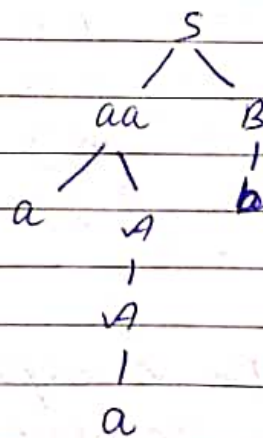 S
aa B
a A b
A
a